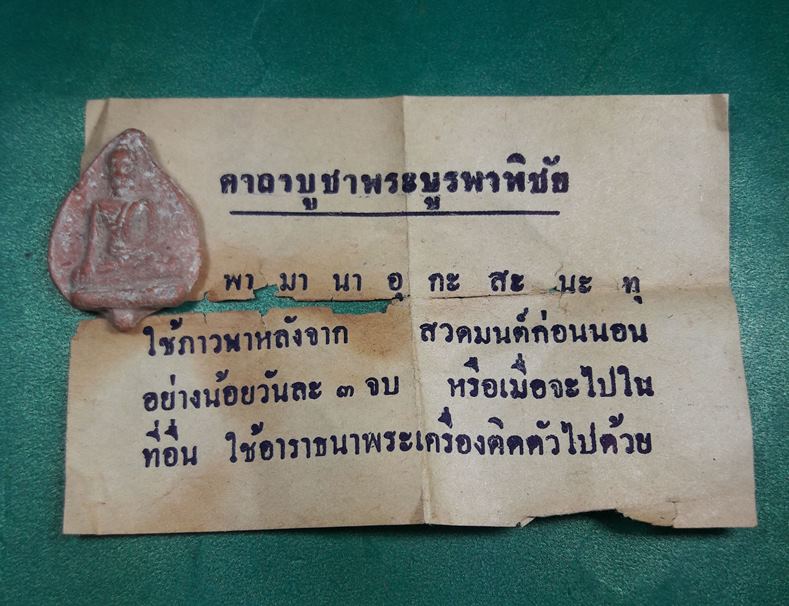 คาถาบูชาพระบูรพาพิชัย
พา มา นา อุ กะ สะ นะ ทุ
ใช้ภาวนาหลังจาก สวดมนต์ก่อนนอน
อย่างน้อยวันละ ๓ จบ หรือเมื่อจะไปใน
ที่อื่น ใช้อาราธนาพระเครื่องติดตัวไปด้วย